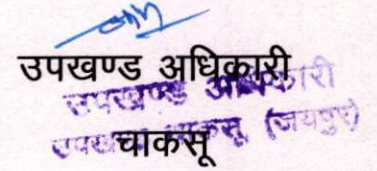 उपखण्ड अधिकारी
उपखण्ड अधिकारी
चाकसू (जयपुर)
चाकसू